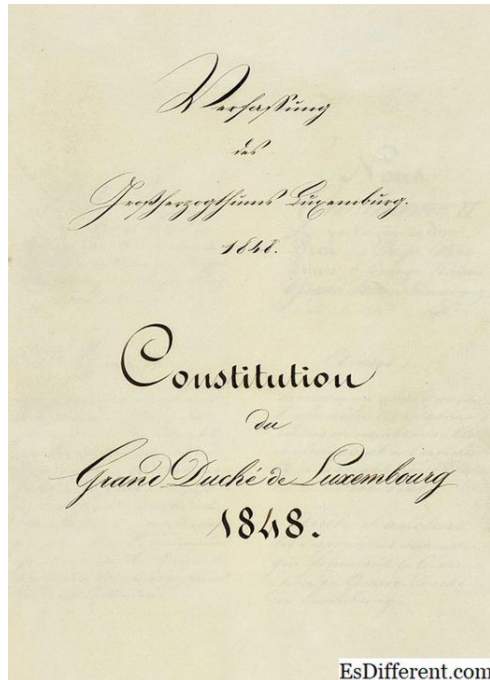 Verfassung
des
Großherzogthums Luxemburg.
1848.
Constitution
du
Grand Duché de Luxembourg
1848.
EsDifferent.com